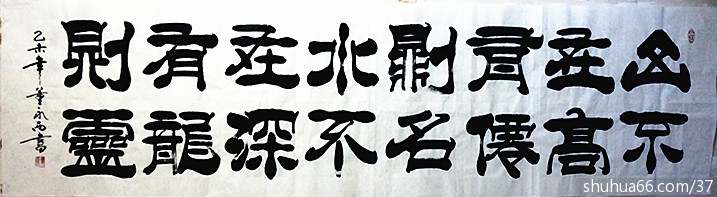 山不
在高
有僊
則名
水不
在深
有龍
則靈
乙未年
shuhua66.com/37